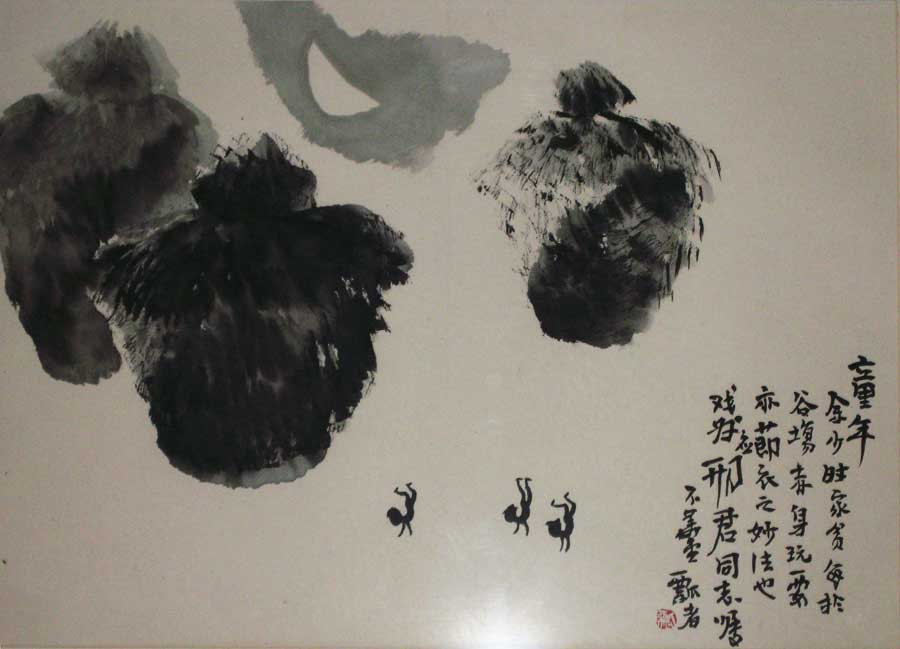 童年
余少时家贫每於
谷場赤身玩耍
亦節衣之妙法也
戏 邢君同志嘱
不 一瓢者